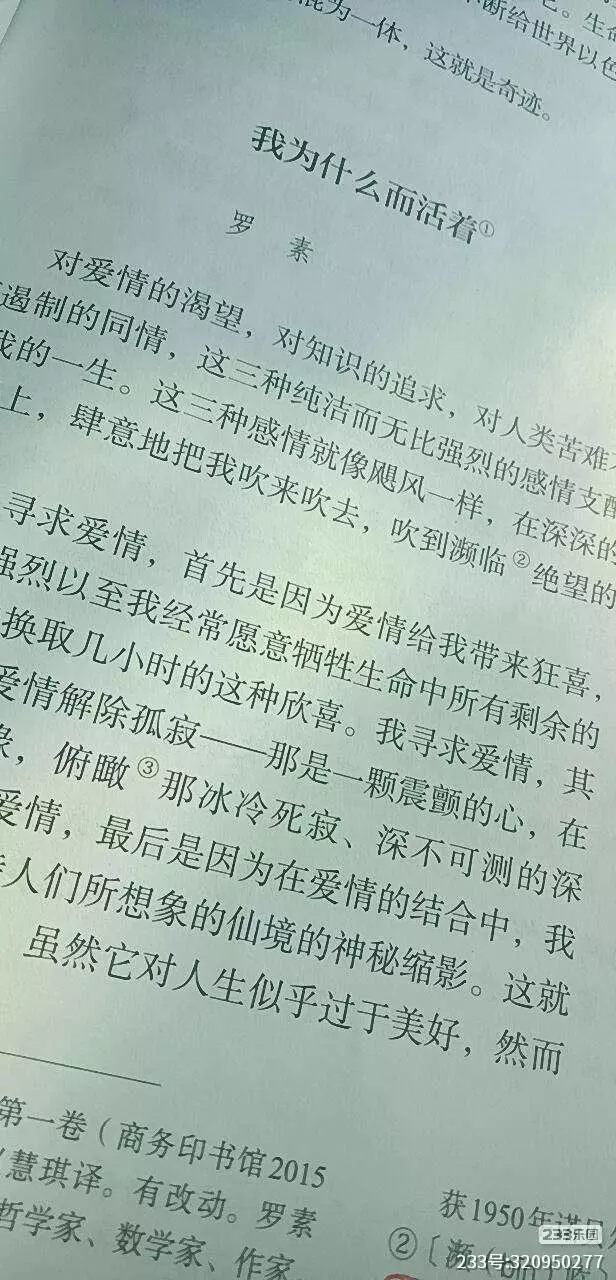 断给世界以色
混为一体，这就是奇迹。
我为什么而活着①
罗 素
对爱情的渴望，对知识的追求，对人类苦难
遏制的同情，这三种纯洁而无比强烈的感情支配
我的一生。这三种感情就像飓风一样，在深深的
上，肆意地把我吹来吹去，吹到濒临②绝望的
寻求爱情，首先是因为爱情给我带来狂喜，
强烈以至我经常愿意牺牲生命中所有剩余的
换取几小时的这种欣喜。我寻求爱情，其
爱情解除孤寂——那是一颗震颤的心，在
，俯瞰③那冰冷死寂、深不可测的深
爱情，最后是因为在爱情的结合中，我
人们所想象的仙境的神秘缩影。这就
虽然它对人生似乎过于美好，然而
第一卷（商务印书馆2015
慧琪译。有改动。罗素
哲学家、数学家、作家
获1950年诺贝
②〔濒（bīn）临〕
233乐园
233号:320950277